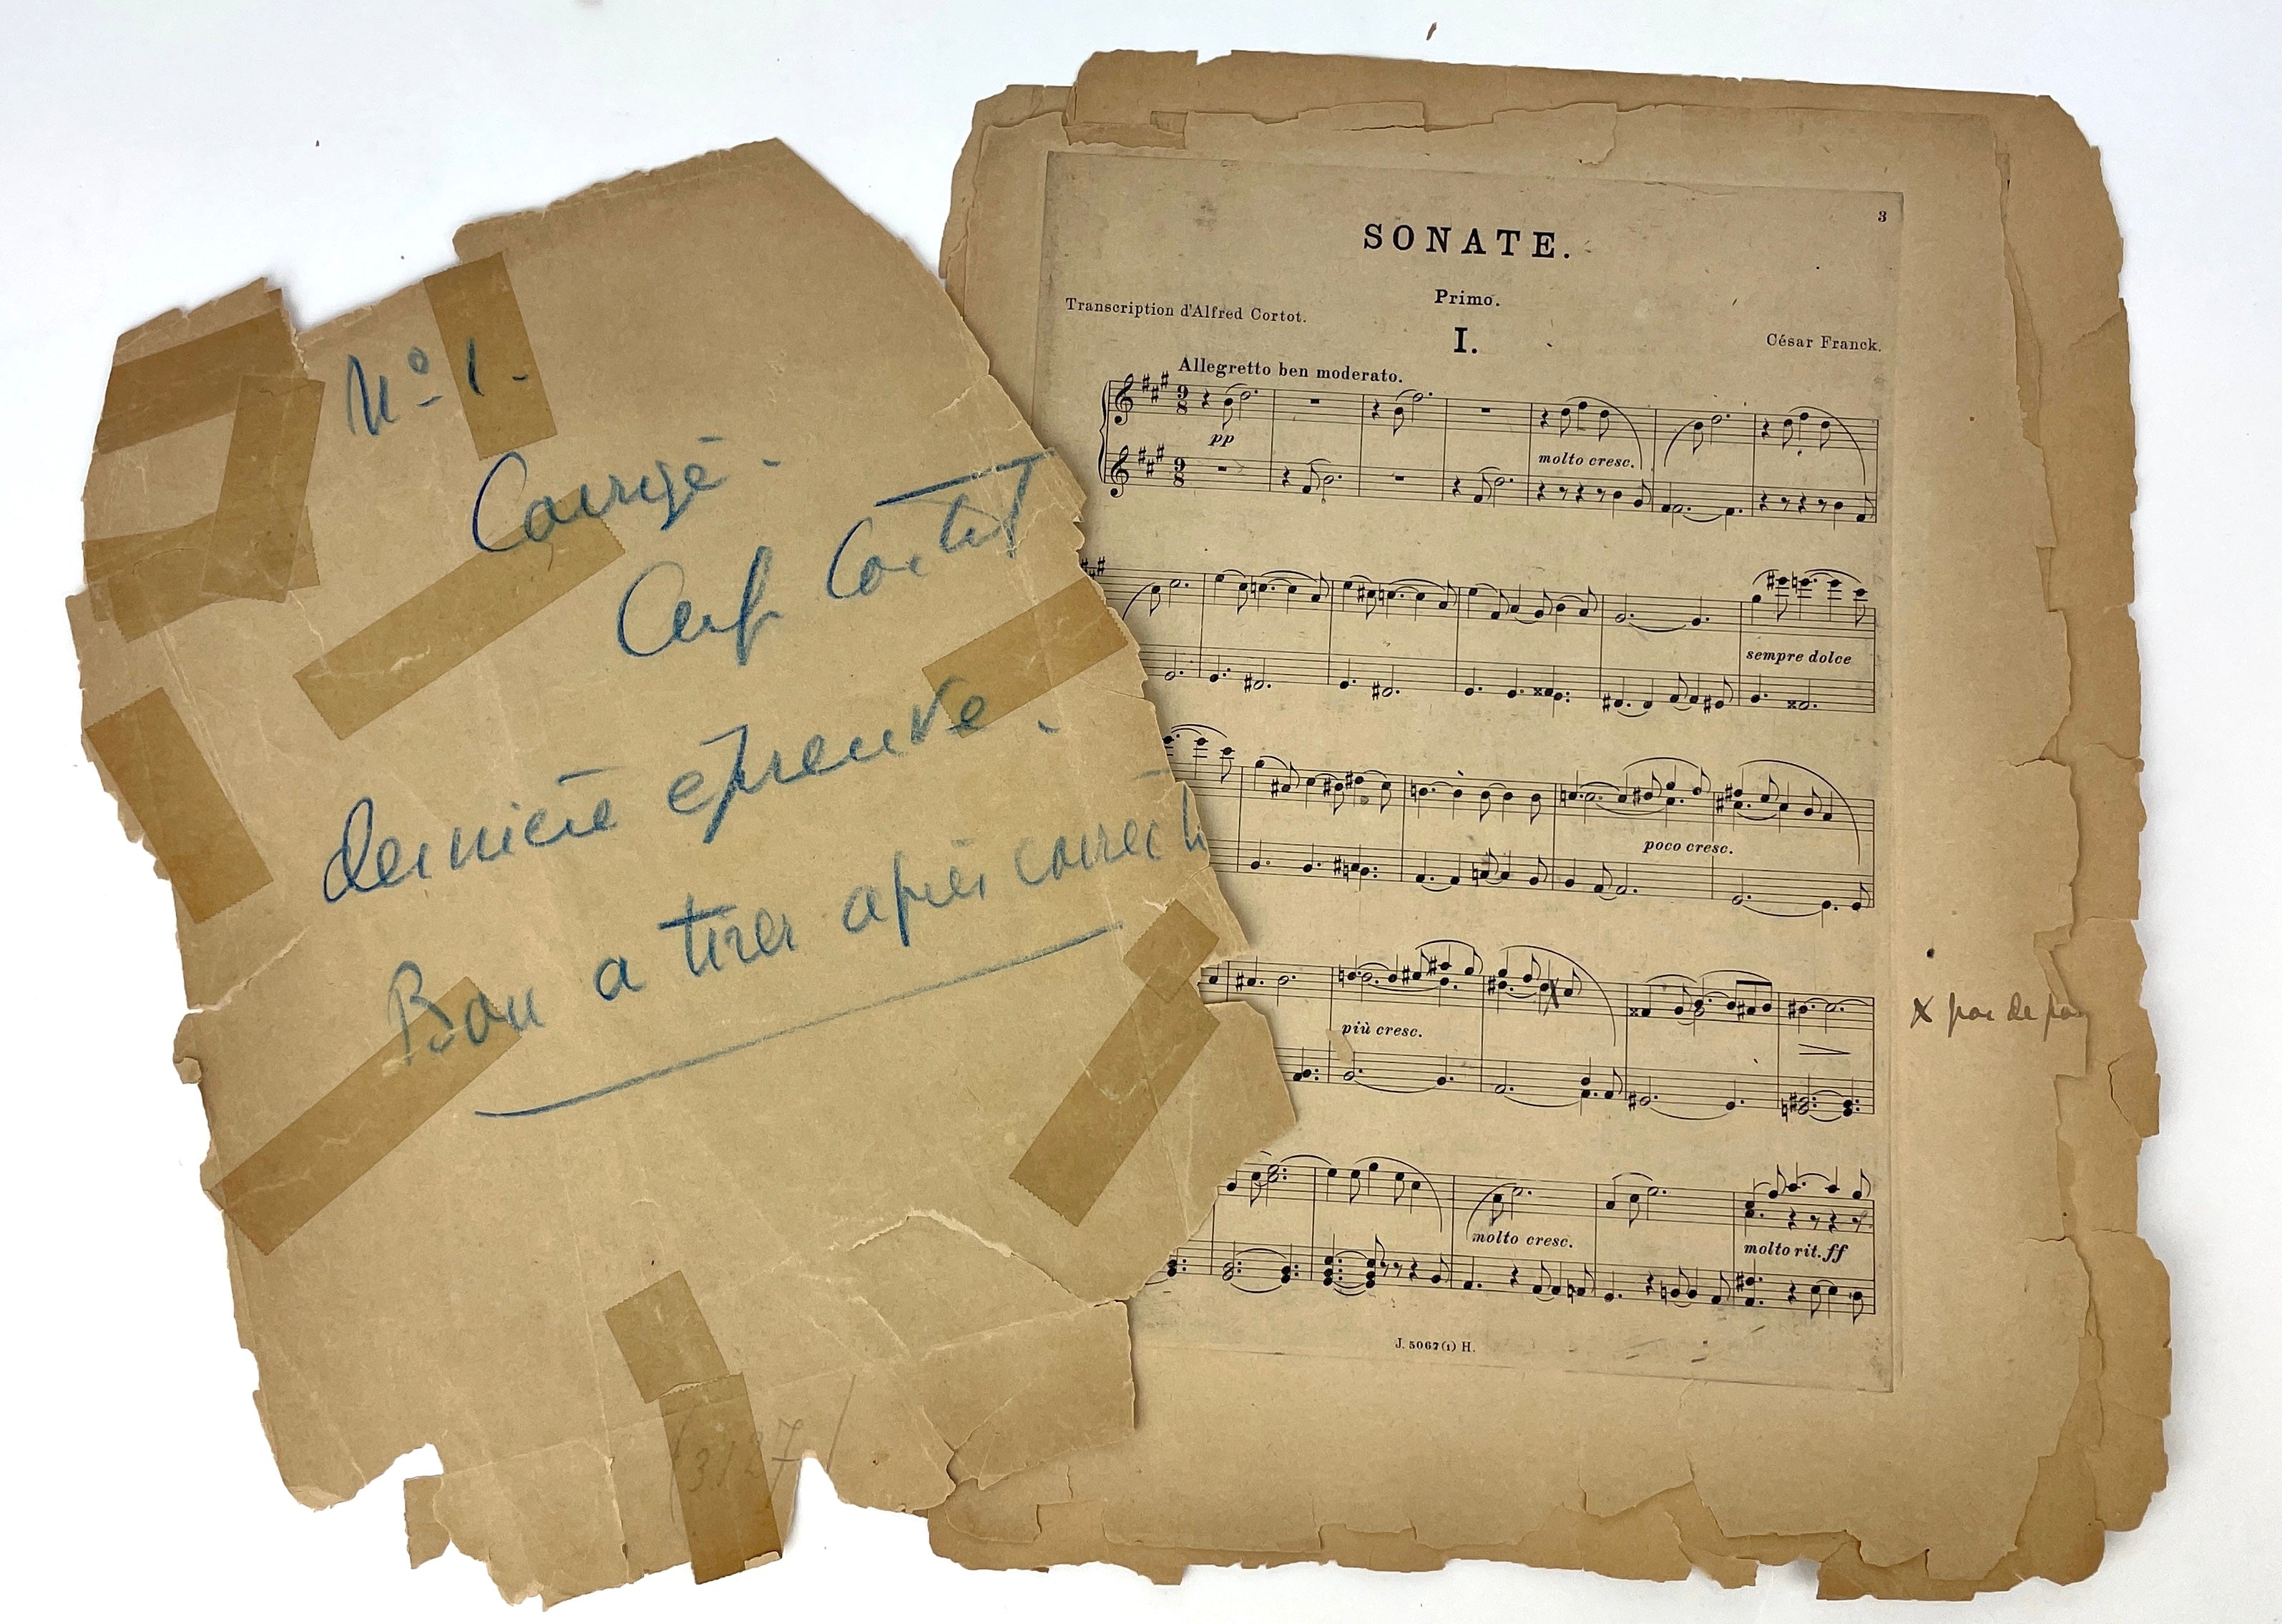 Nº 1.
Corrigé.
Alf Cortot
dernière épreuve.
Bon a tirer après correct
3127
3
SONATE.
Primo.
Transcription d'Alfred Cortot.
I.
César Franck.
Allegretto ben moderato.
pp
molto cresc.
sempre dolce
poco cresc.
più cresc.
X pas de
molto cresc.
molto rit. ff
J. 5067(1) H.